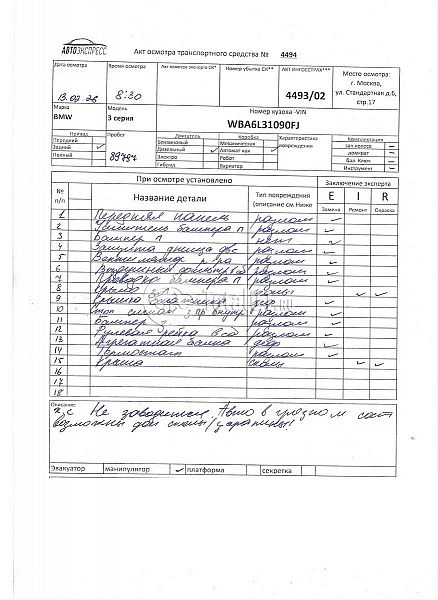 АВТОЭКСПРЕСС
Акт осмотра транспортного средства № 4494
Дата осмотра Время осмотра Акт осмотра эксперта СК* Номер убытка СК** АКТ ИНГОССТРАХ*** Место осмотра:
г. Москва,
ул. Стандартная д.6,
стр.17
8:30 4493/02
Марка Модель Номер кузова -VIN
BMW 3 серия WBA6L31090FJ
Привод Пробег Двигатель Коробка Характеристика повреждений Комплектация
Передний Бензиновый Механическая зап колесо
Задний Дизельный Автомат кая домкрат
Полный 89787 Электро Робот бал. Ключ
Гибрид Вариатор Инструмент
При осмотре установлено Заключение эксперта
№ п/п Название детали Тип повреждения (описание см.Ниже E I R
Замена Ремонт Окраска
1 Передняя панель разлом
2 Усилитель бампера п разлом
3 Бампер п нет
4 Защита днища двс разлом
5 разлом
6 разлом
7 Проводка бампера п разлом
8 Крыло
9 Крышка багажника деф
10 Стоп сигнал з.пр внутр разлом
11 Бампер з разлом
12 Рулевая рейка разлом
13 деф
14 Термостат разлом
15 Крыша сколы
16
17
18
Описание:
т/с Не заводится. Авто в грязном сост
возможны доп сколы/царапины!
Эвакуатор манипулятор платформа секретка